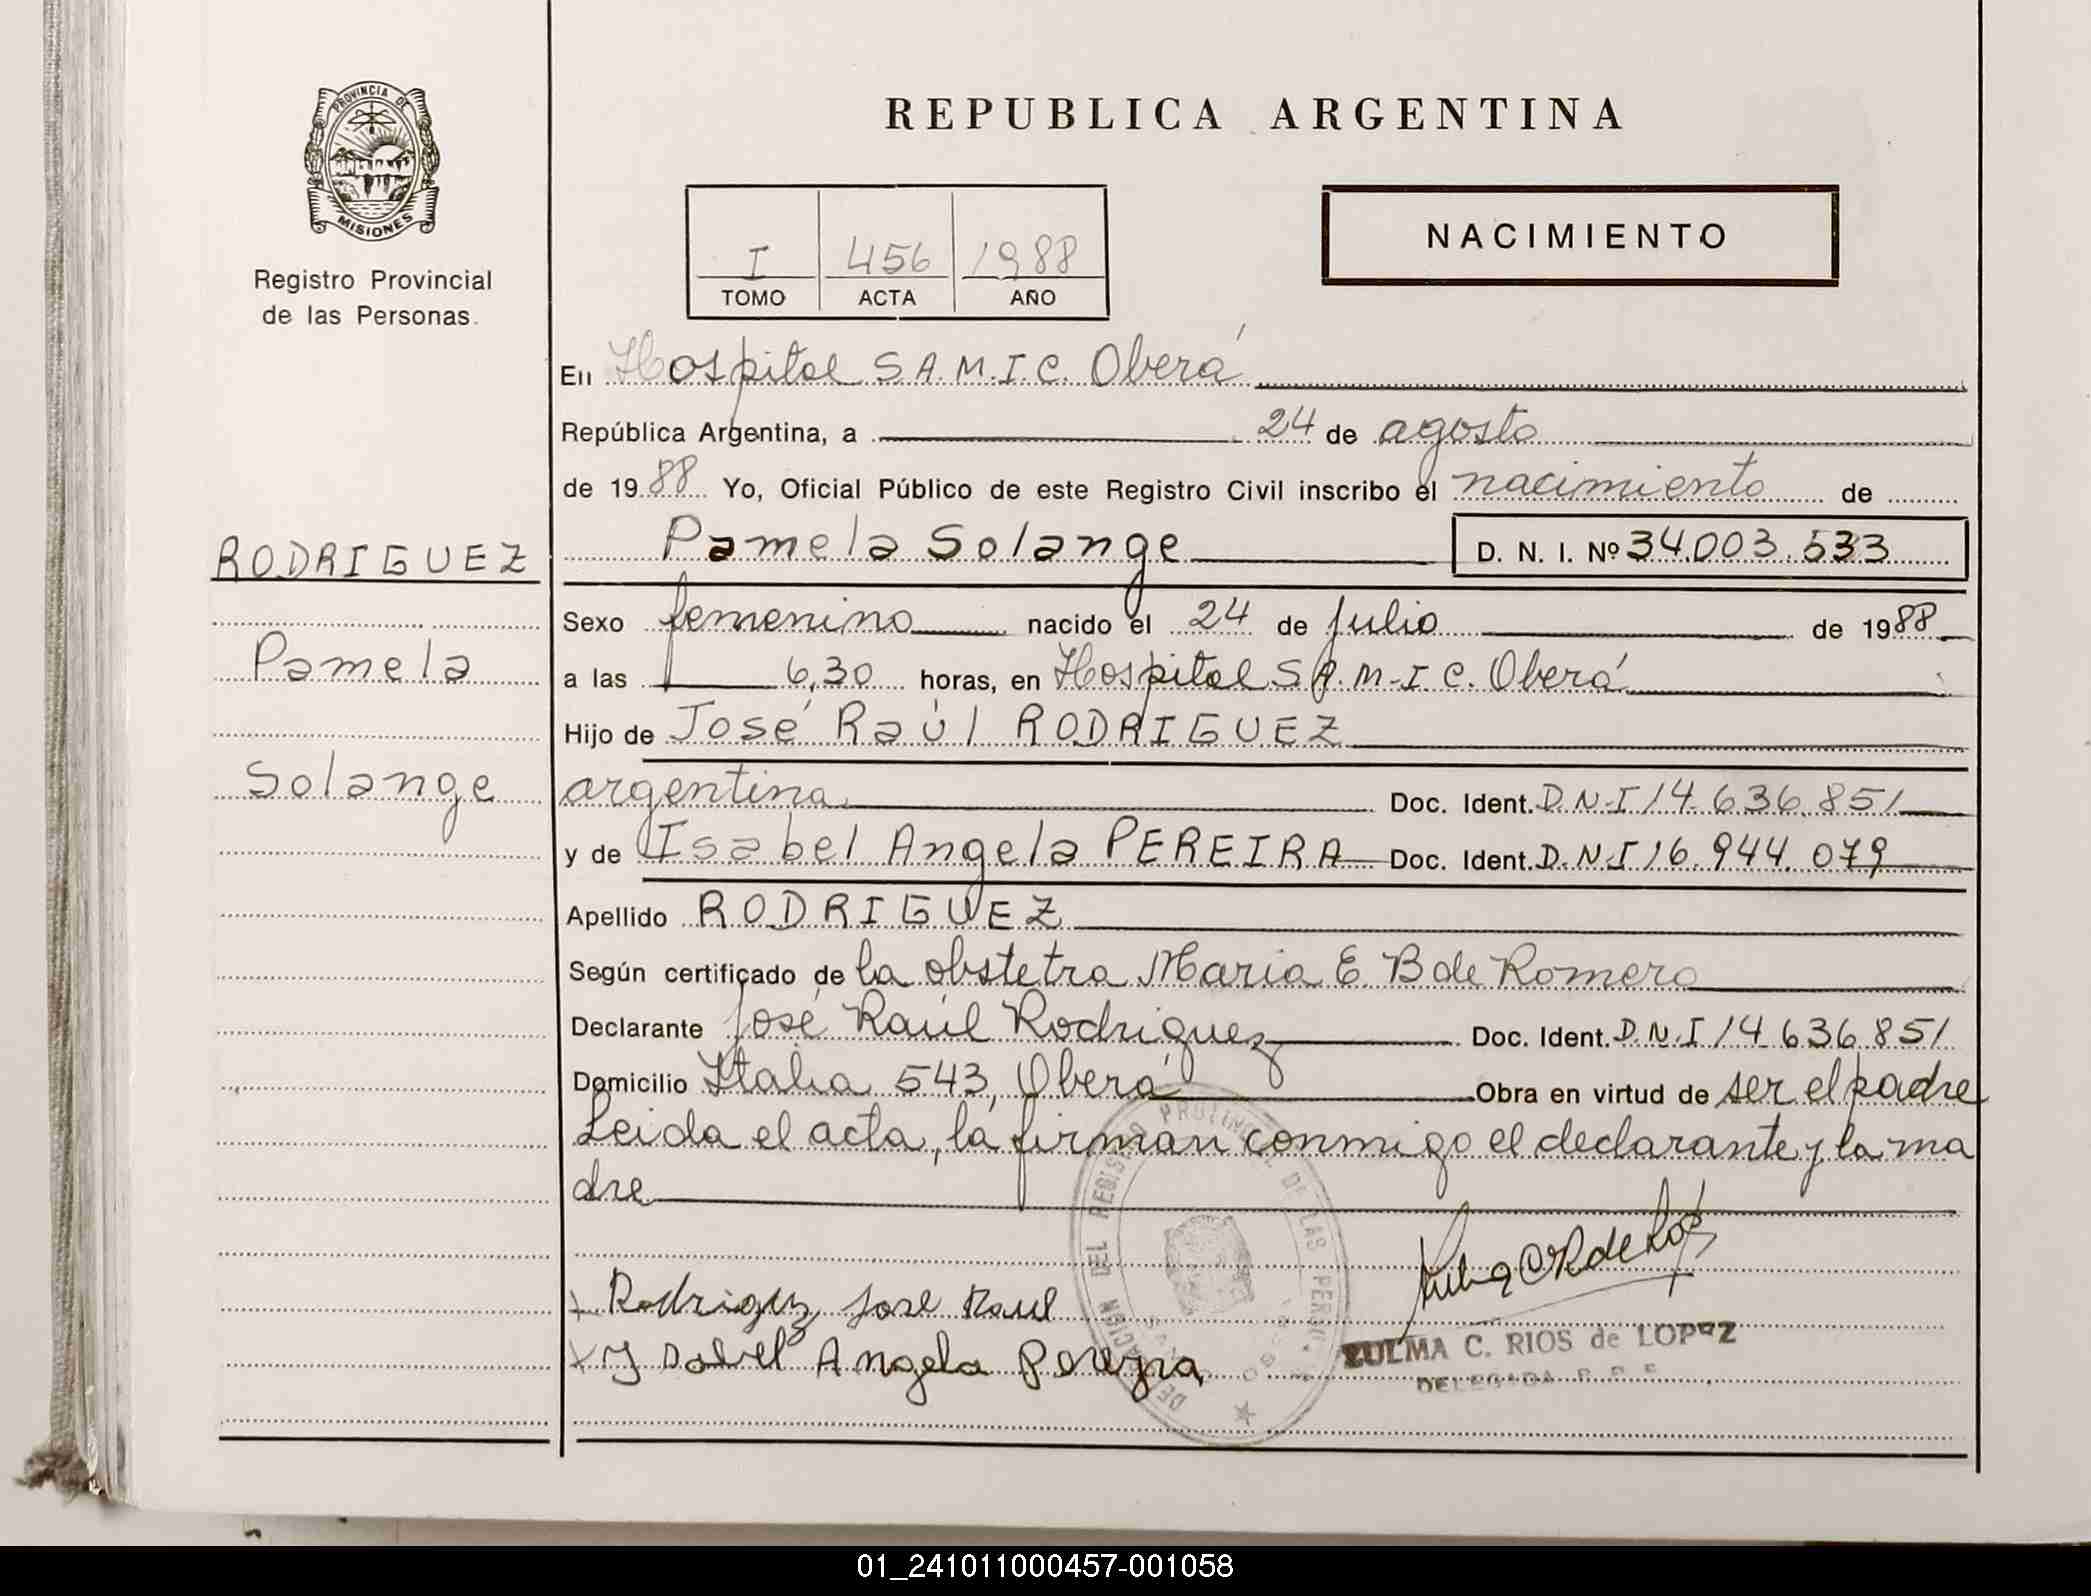 PROVINCIA DE
MISIONES
Registro Provincial
de las Personas.
RODRIGUEZ
Pamela
Solange
REPUBLICA ARGENTINA
I 456 1988
TOMO ACTA AÑO
NACIMIENTO
En Hospital S.A.M.I.C. Oberá
República Argentina, a 24 de agosto
de 1988 Yo, Oficial Público de este Registro Civil inscribo el nacimiento de
Pamela Solange D. N. I. Nº 34.003.533
Sexo femenino nacido el 24 de julio de 1988
a las 6,30 horas, en Hospital S.A.M.I.C. Oberá
Hijo de José Raúl RODRIGUEZ
argentina Doc. Ident. D.N.I 14.636.851
y de Isabel Angela PEREIRA Doc. Ident. D.N.I 16.944.079
Apellido RODRIGUEZ
Según certificado de la obstetra Maria E. B de Romero
Declarante José Raúl Rodriguez Doc. Ident. D.N.I 14.636.851
Domicilio Italia 543, Oberá Obra en virtud de ser el padre
Leida el acta, la firman conmigo el declarante y la ma
dre
Rodriguez Jose Raul
Ysabel Angela Pereyra
DELEGACION DEL REGISTRO PROVINCIAL DE LAS PERSONAS
ZULMA C. RIOS de LOPEZ
DELEGADA R.P.P.
01_241011000457-001058